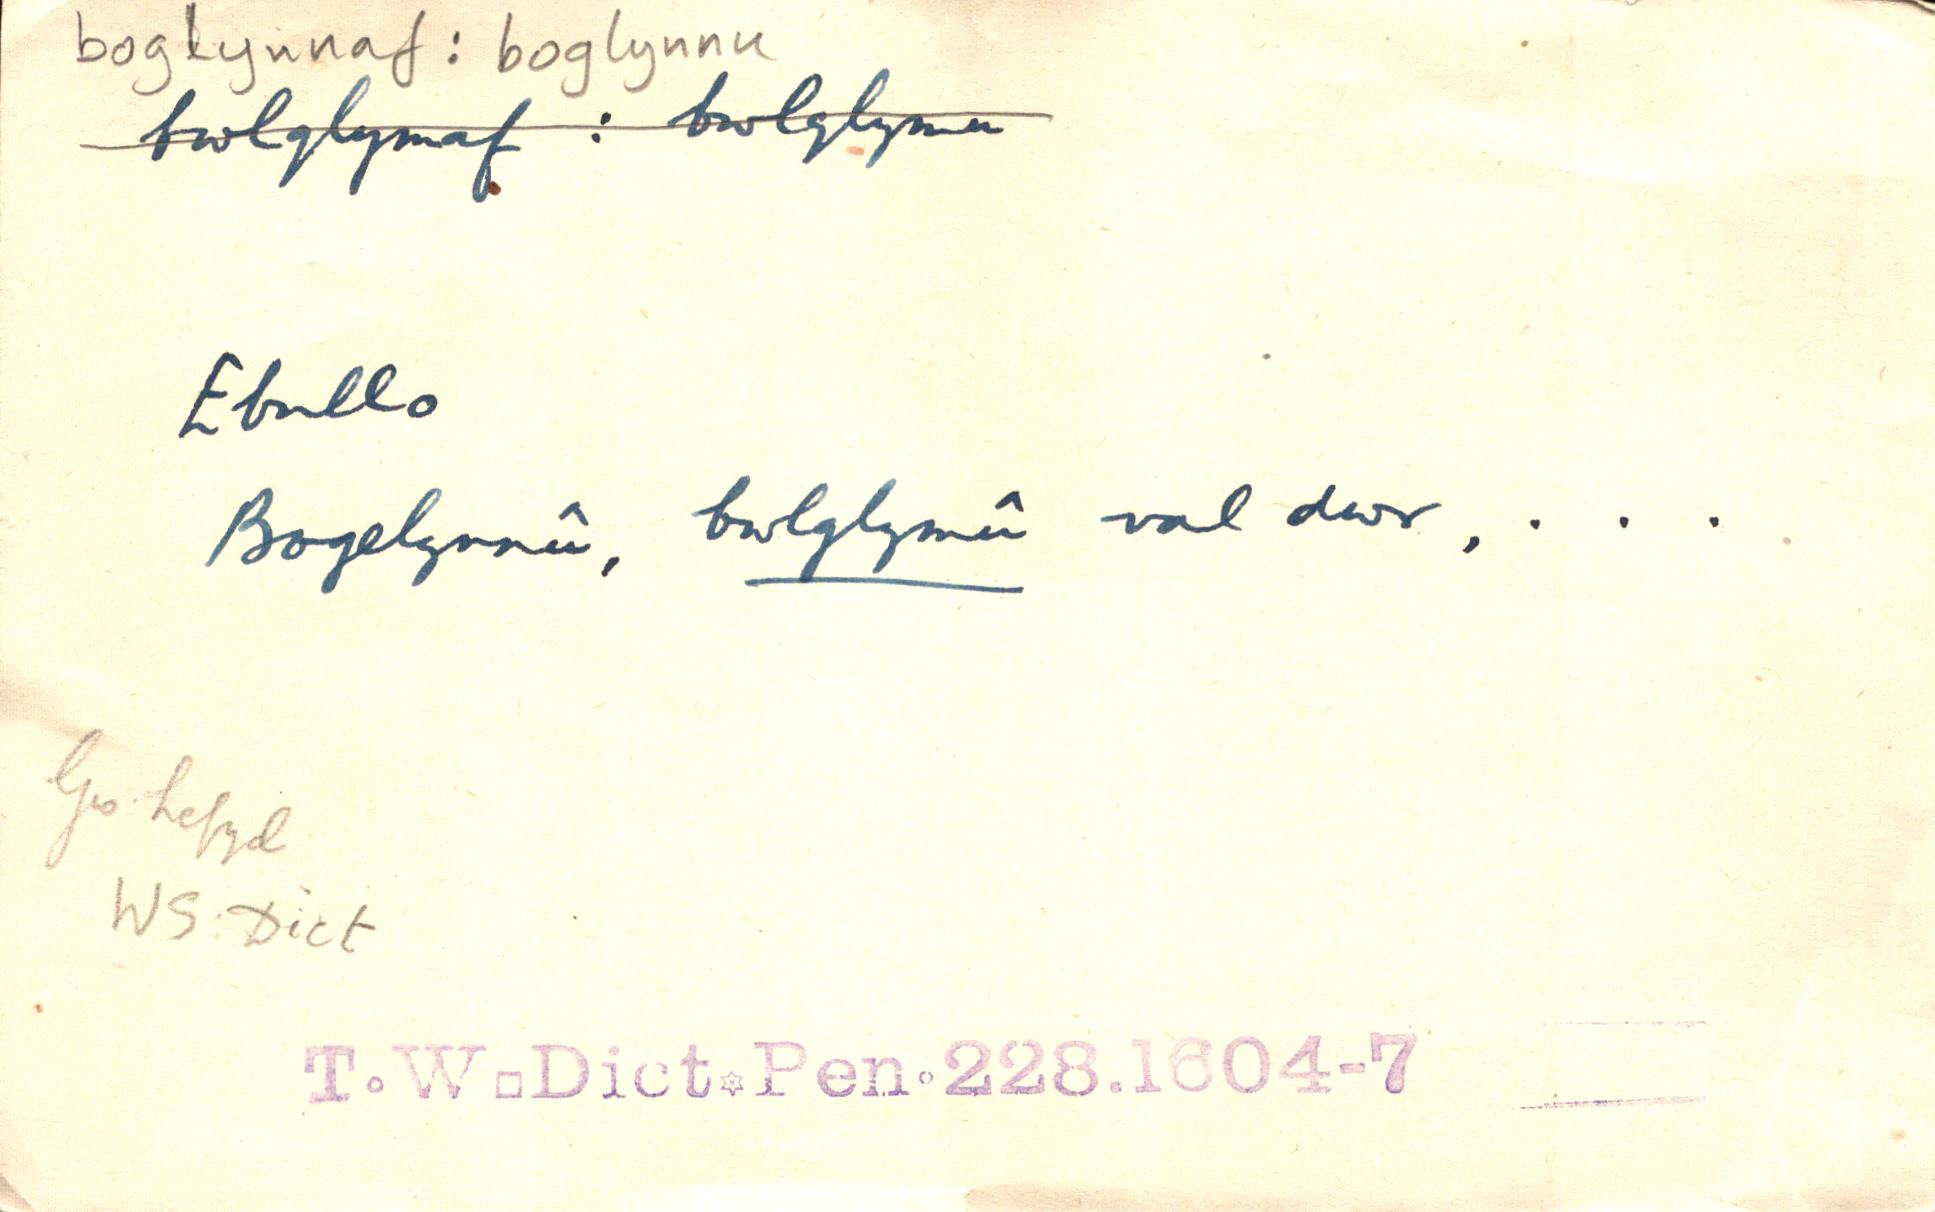 boglynnaf : boglynnu
bwlglymaf : bwlglymu
Ebullo
Bogelynnû, bwlglymû val dwr, . . .
Gw. hefyd
WS: Dict
T.W.Dict.Pen.228.1604-7